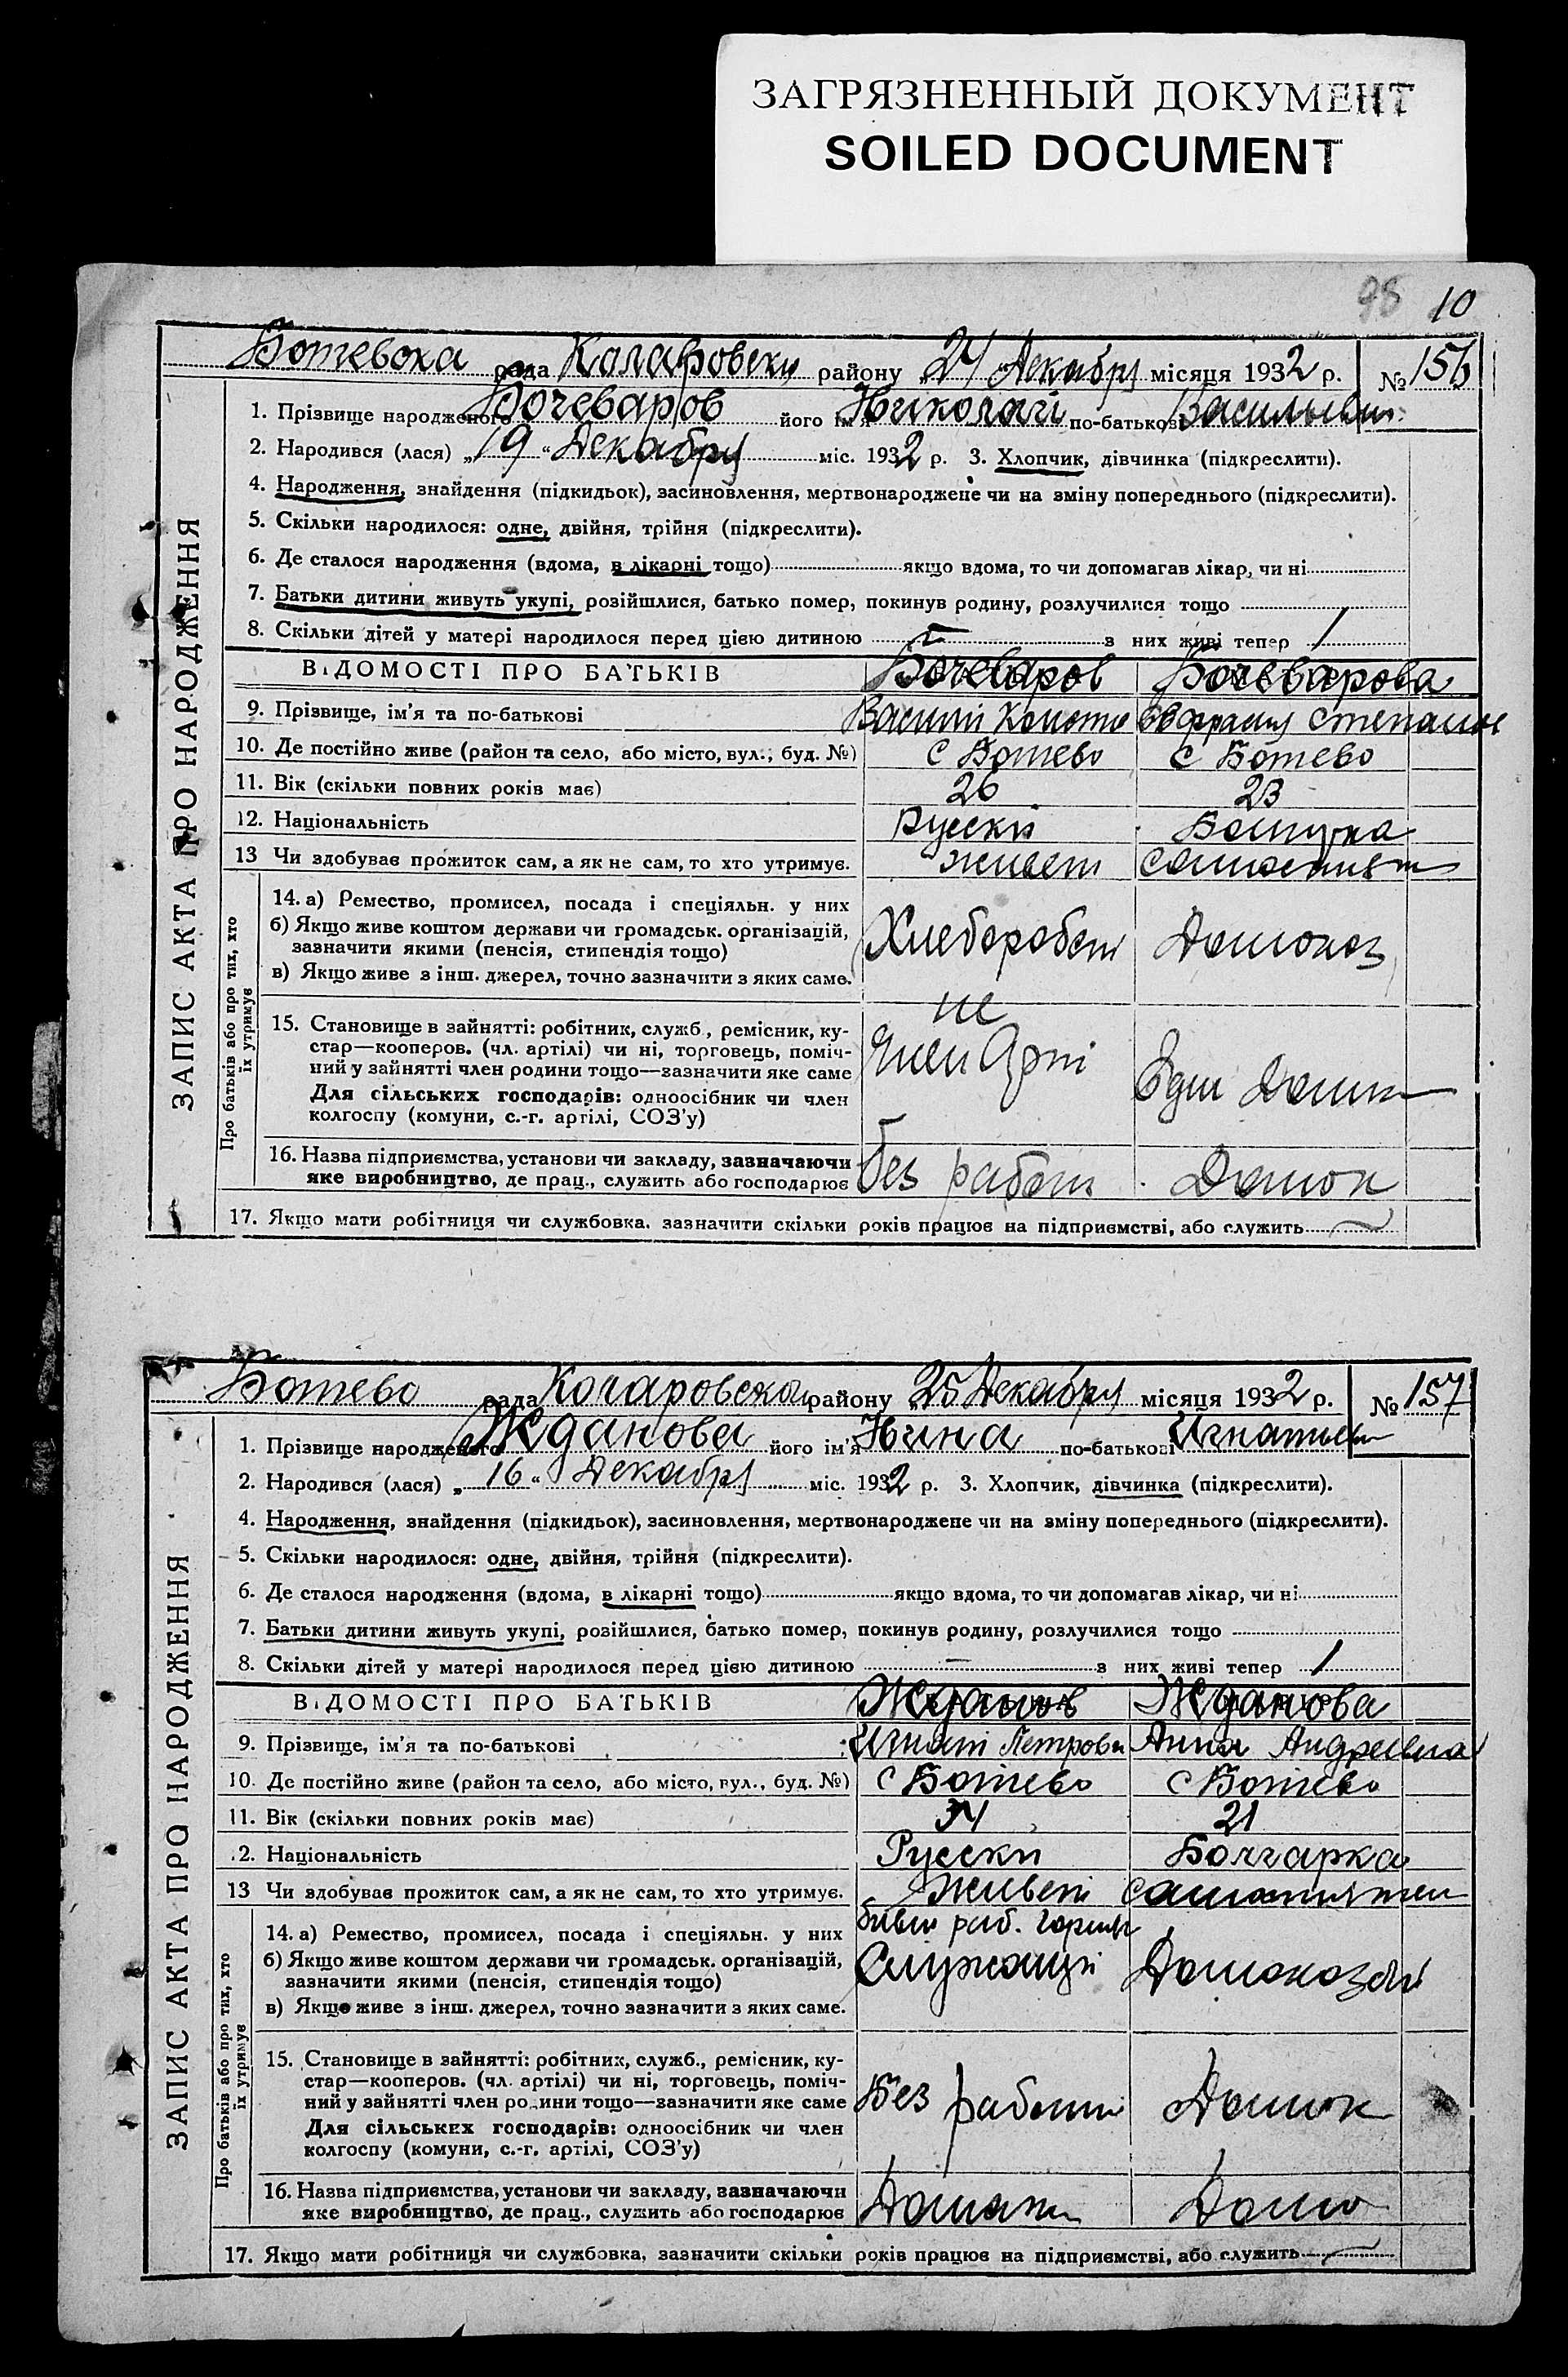 ЗАГРЯЗНЕННЫЙ ДОКУМЕНТ
SOILED DOCUMENT
98 10
Ботевска рада Коларовски району „24 Декабря місяця 1932 р. № 156
1. Прізвище народженого Бочеваров його ім'я Николай по-батькові Васильевич
2. Народився (лася) „19“ Декабря міс. 1932 р. 3. Хлопчик, дівчинка (підкреслити).
4. Народження, знайдення (підкидьок), засиновлення, мертвонароджене чи на зміну попереднього (підкреслити).
5. Скільки народилося: одне, двійня, трійня (підкреслити).
6. Де сталося народження (вдома, в лікарні тощо) якщо вдома, то чи допомагав лікар, чи ні
7. Батьки дитини живуть укупі, розійшлися, батько помер, покинув родину, розлучилися тощо
8. Скільки дітей у матері народилося перед цією дитиною в них живі тепер 1
ВІДОМОСТІ ПРО БАТЬКІВ Бочеваров Бочеварова
9. Прізвище, ім'я та по-батькові Василий
10. Де постійно живе (район та село, або місто, вул., буд. №) с Ботево с Ботево
11. Вік (скільки повних років має) 26 23
12. Національність Русски
13 Чи здобував прожиток сам, а як не сам, то хто утримує. живет
14. а) Ремество, промисел, посада і спеціяльн. у них
б) Якщо живе коштом держави чи громадськ. організацій,
зазначити якими (пенсія, стипендія тощо)
в) Якщо живе з інш. джерел, точно зазначити з яких саме.
Домохоз
15. Становище в зайнятті: робітник, служб., ремісник, ку-
стар—кооперов. (чл. артілі) чи ні, торговець, поміч-
ний у зайнятті член родини тощо—зазначити яке саме
Для сільських господарів: одноосібник чи член
колгоспу (комуни, с.-г. артілі, СОЗ'у)
не
Член Арті
16. Назва підприємства, установи чи закладу, зазначаючи
яке виробництво, де прац., служить або господарює
без работи Домох
17. Якщо мати робітниця чи службовка, зазначити скільки років працює на підприємстві, або служить
ЗАПИС АКТА ПРО НАРОДЖЕННЯ
Про батьків або про тих, хто
їх утримує
Ботево рада Коларовска району „25 Декабря місяця 1932 р. № 157
1. Прізвище народженого Жданова його ім'я Нина по-батькові Игнатьев
2. Народився (лася) „16“ Декабря міс. 1932 р. 3. Хлопчик, дівчинка (підкреслити).
4. Народження, знайдення (підкидьок), засиновлення, мертвонароджене чи на зміну попереднього (підкреслити).
5. Скільки народилося: одне, двійня, трійня (підкреслити).
6. Де сталося народження (вдома, в лікарні тощо) якщо вдома, то чи допомагав лікар, чи ні
7. Батьки дитини живуть укупі, розійшлися, батько помер, покинув родину, розлучилися тощо
8. Скільки дітей у матері народилося перед цією дитиною — в них живі тепер 1
ВІДОМОСТІ ПРО БАТЬКІВ Жданов Жданова
9. Прізвище, ім'я та по-батькові Игнат Петрови Анна Андреевна
10. Де постійно живе (район та село, або місто, вул., буд. №) с Ботево с Ботево
11. Вік (скільки повних років має) 34 21
12. Національність Русски Болгарка
13 Чи здобував прожиток сам, а як не сам, то хто утримує. живет
14. а) Ремество, промисел, посада і спеціяльн. у них
б) Якщо живе коштом держави чи громадськ. організацій,
зазначити якими (пенсія, стипендія тощо)
в) Якщо живе з інш. джерел, точно зазначити з яких саме.
Служащи
15. Становище в зайнятті: робітник, служб., ремісник, ку-
стар—кооперов. (чл. артілі) чи ні, торговець, поміч-
ний у зайнятті член родини тощо—зазначити яке саме
Для сільських господарів: одноосібник чи член
колгоспу (комуни, с.-г. артілі, СОЗ'у)
Без работи Домох
16. Назва підприємства, установи чи закладу, зазначаючи
яке виробництво, де прац., служить або господарює
17. Якщо мати робітниця чи службовка, зазначити скільки років працює на підприємстві, або служить
ЗАПИС АКТА ПРО НАРОДЖЕННЯ
Про батьків або про тих, хто
їх утримує